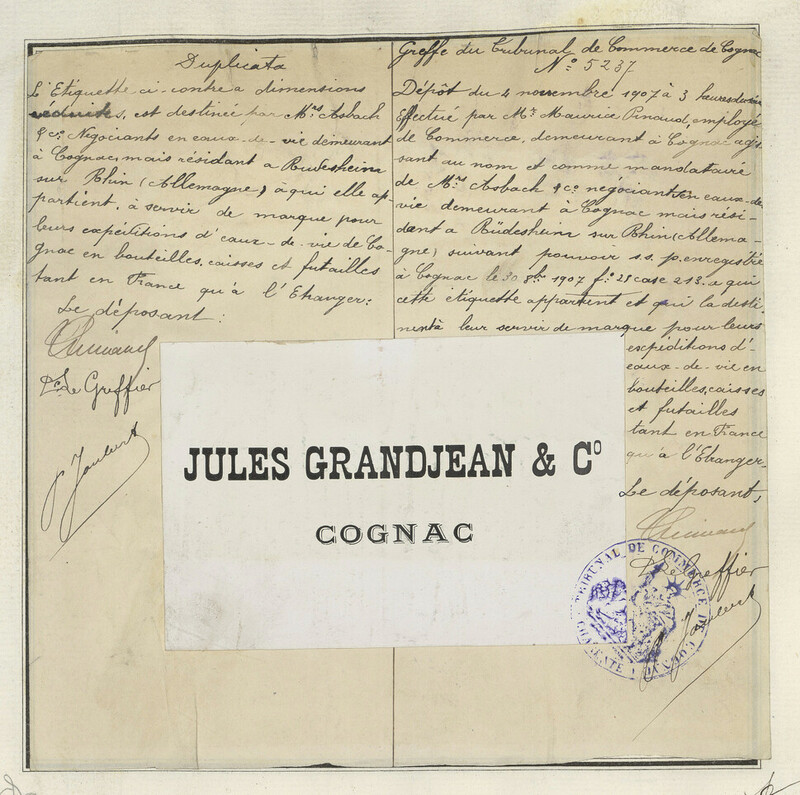 Duplicata
L'Etiquette ci-contre a dimensions
réduites, est destinée par Mrs Asbach
& Co. Négociants en eaux-de-vie demeurant
à Cognac, mais résidant a Rudesheim
sur Rhin (Allemagne) à qui elle ap-
partient, à servir de marque pour
leurs expéditions d'eaux-de-vie de Co-
gnac en bouteilles, caisses et futailles
tant en France qu'à l'Etranger:
Le déposant:
Pinaud
Le Greffier
Greffe du Tribunal de Commerce de Cognac
No 5237
Dépôt du 4 novembre 1907 à 3 heures du soir
Effectué par Mr Maurice Pinaud, employé
de Commerce, demeurant à Cognac agis-
sant au nom et comme mandataire
de Mrs Asbach & Co négociants en eaux-de-
vie demeurant à Cognac mais rési-
dant a Rüdesheim sur Rhin (Allema-
gne) suivant pouvoir s.s.p. enregistré
à Cognac le 30 8bre 1907 fo 25 case 213. a qui
cette étiquette appartient et qui la desti-
nent à leur servir de marque pour leurs
expéditions d'-
eaux-de-vie en
bouteilles, caisses
et futailles
tant en France
qu'à l'Etranger.
Le déposant,
Pinaud
Le Greffier
JULES GRANDJEAN & Co
COGNAC
TRIBUNAL DE COMMERCE DE COGNAC